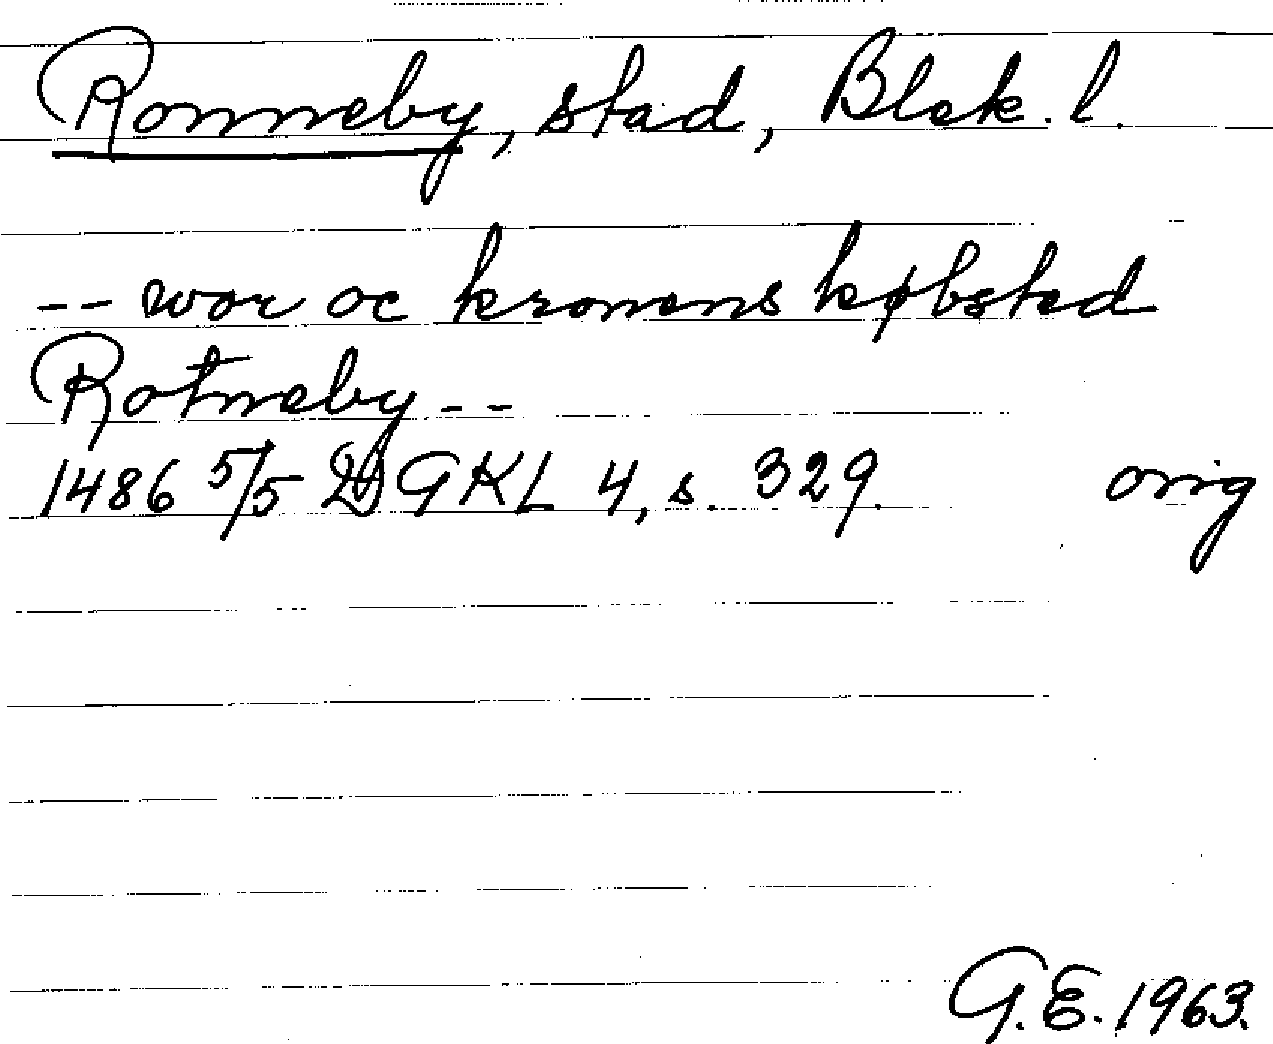 Ronneby, stad, Blek. l.
-- wor oc kronens købsted
Rotneby --
1486 5/5 DGKL 4, s. 329. orig
G.E. 1963.